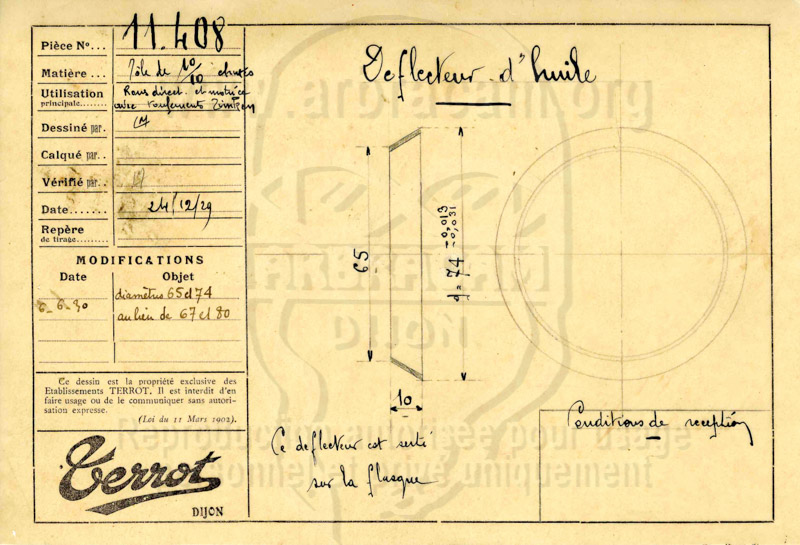 Pièce No... 11.408
Matière ... Tôle de 10/10
Utilisation
principale........
Renv direct. et motrice
avec roulements Timken
Dessiné par.
Calqué par..
Vérifié par..
Date....... 24/12/29
Repère
de tirage.......
MODIFICATIONS
Date Objet
6-6-30 diamètres 65 et 74
au lieu de 67 et 80
Ce dessin est la propriété exclusive des
Etablissements TERROT. Il est interdit d'en
faire usage ou de le communiquer sans autori-
sation expresse.
(Loi du 11 Mars 1902).
Terrot
DIJON
Deflecteur d'huile
65
d = 74 -0,013
-0,031
10
Ce deflecteur est serti
sur la flasque
Conditions de reception
www.arbracam.org
ARBRACAM
DIJON
Reproduction autorisée pour usage
personnel et privé uniquement